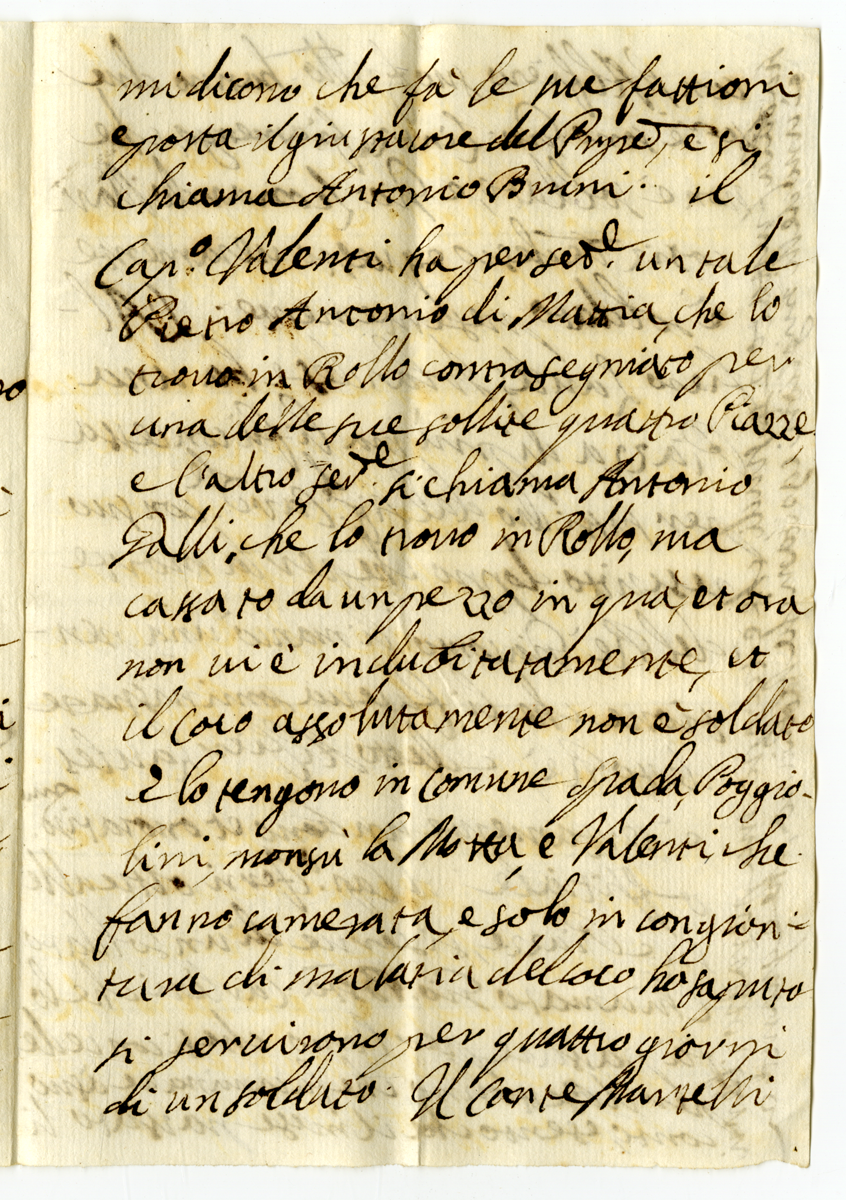 mi dicono che fà le sue fattioni
e porta il giustacore del , e si
chiama Antonio Bruni. il
Cap.º Valenti ha per ser.e un tale
Pietro Antonio di Mattia, che lo
trovo in Rollo contrasegniato per
una delle sue sollite quattro Piazze,
e l'altro ser.e si chiama Antonio
Galli, che lo trovo in Rollo, ma
cassato da un pezzo in quà, et ora
non vi è indubitatamente, et
il coco assolutamente non è soldato
e lo tengono in comune Spada, Poggio-
lini, monsù la Motta, e Valenti, che
fanno camerata, e solo in congion-
tura di malatia del coco, hò saputo
si servirono per quattro giorni
di un soldato. Il Conte Martelli